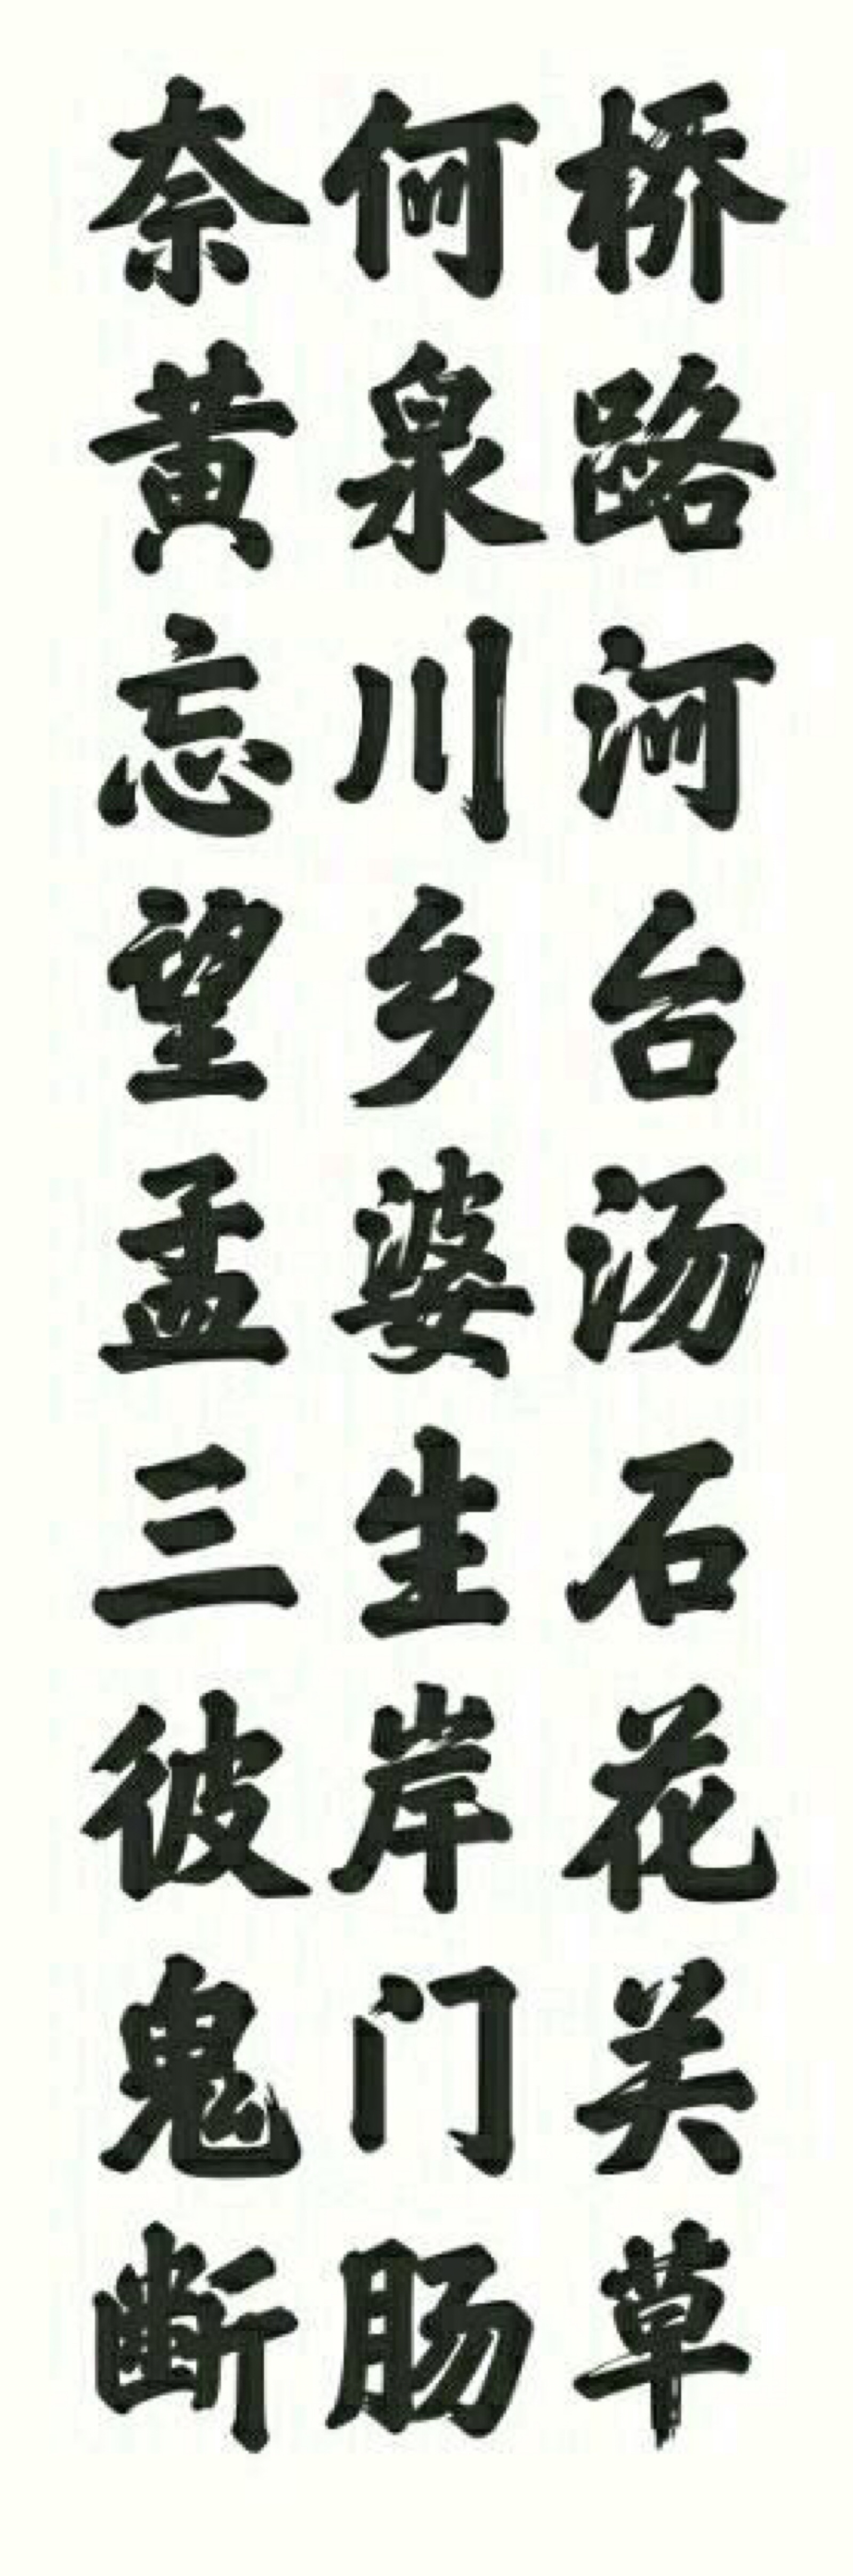 奈何桥
黄泉路
忘川河
望乡台
孟婆汤
三生石
彼岸花
鬼门关
断肠草